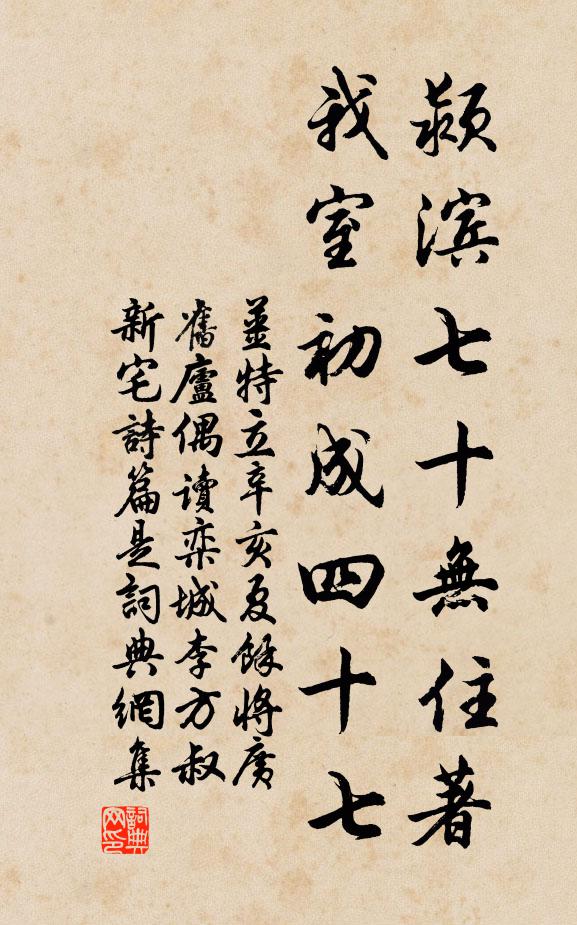 颍滨七十無住著
我室初成四十七
薑特立辛亥夏餘將廣
舊廬偶讀栾城李方叔
新宅詩篇是詞典網集
詞典网印